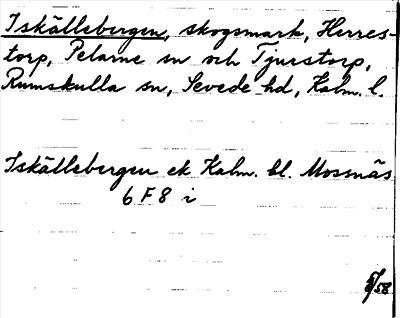 Iskällebergen, skogsmark, Herres-
torp, Pelarne sn och Tjurstorp,
Rumskulla sn, Sevede hd, Kalm. l.
Iskällebergen ek Kalm. bl. Mossnäs
6 F 8 i